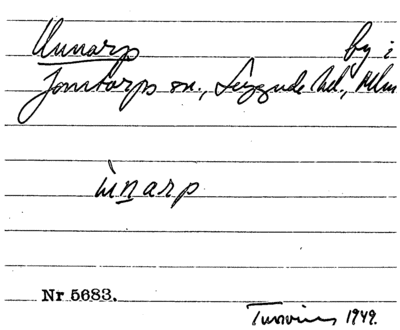 Unnarp by i
Jonstorps sn., Luggude hd., Mlm
ùnarp
Nr 5683.
1949.